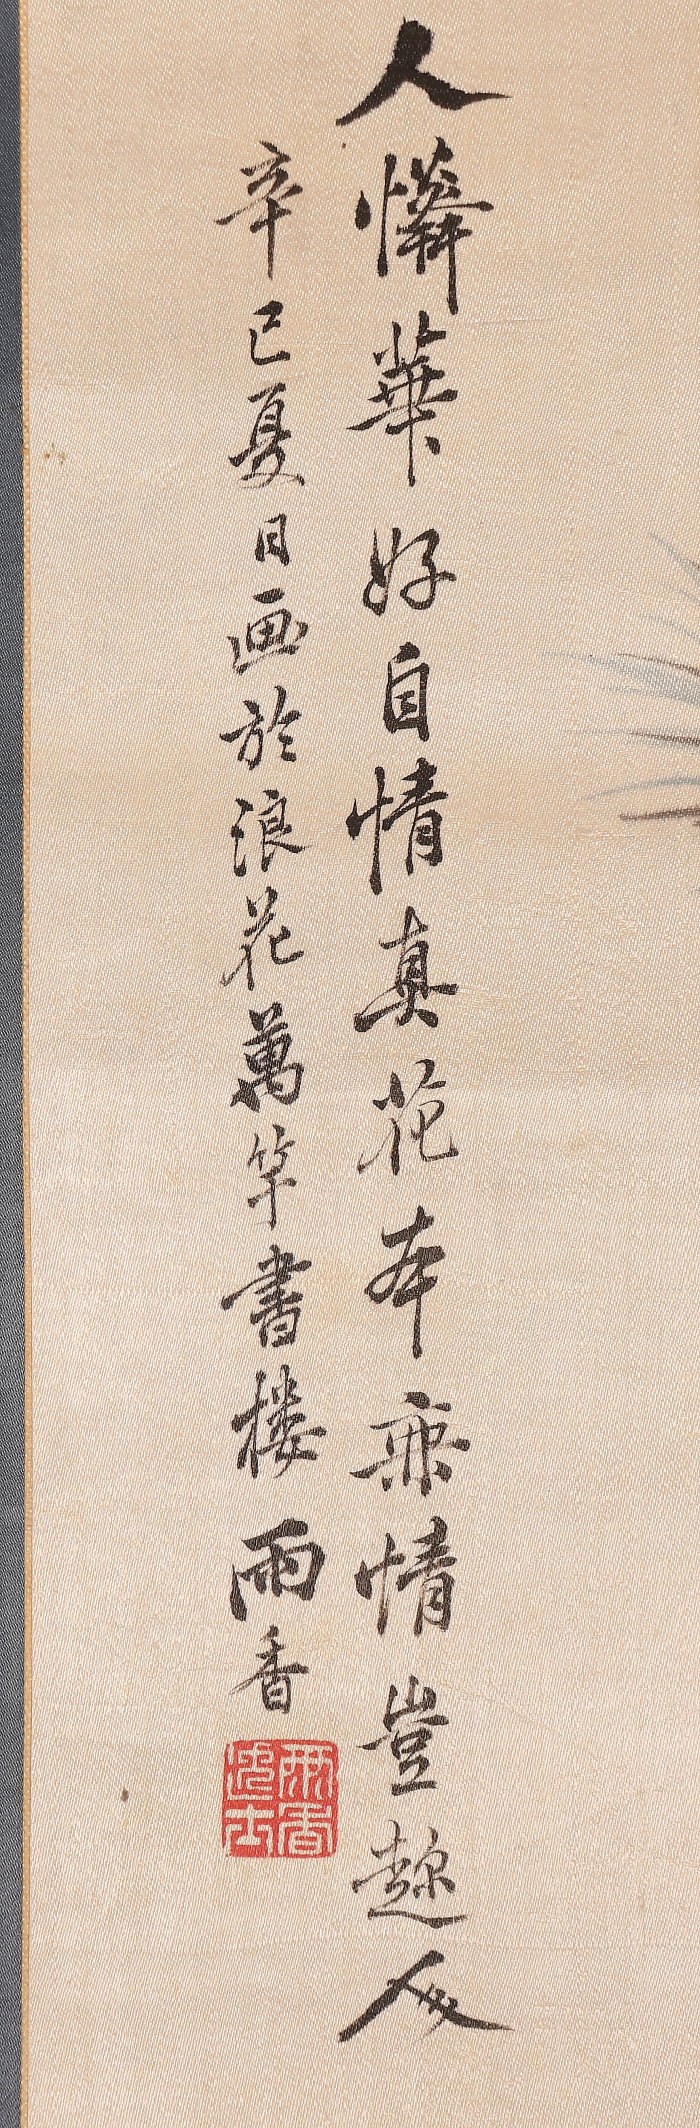 人憐華好自情真花本無情豈趁人
辛巳夏日画於浪花萬竿書楼 雨香
雨香